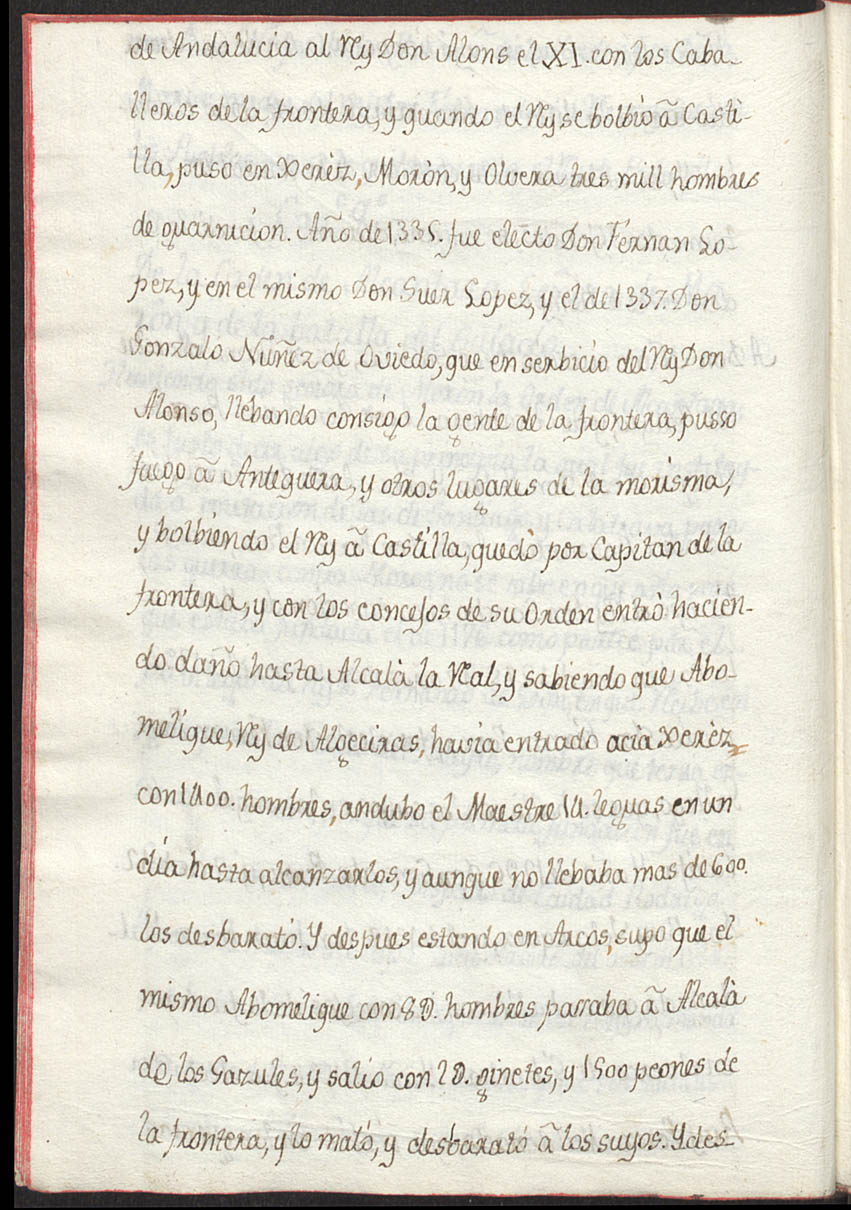 de Andalucia al Rey Don Alons el XI. con los Caba-
lleros de la frontera, y quando el Rey se bolbio â Casti-
lla, puso en Xerèz, Moròn, y Olvera tres mill hombres
de guarnicion. Año de 1335. fue electo Don Fernan Lo-
pez, y en el mismo Don Suer Lopez, y el de 1337. Don
Gonzalo Nuñez de Oviedo, que en serbicio del Rey Don
Alonso, llebando consigo la gente de la frontera, pusso
fuego â Antequera, y otros lugares de la morisma,
y bolbiendo el Rey â Castilla, quedò por Capitan de la
frontera, y con los concejos de su Orden entrò hacien-
do daño hasta Alcalà la Real, y sabiendo que Abo-
melique, Rey de Algeciras, havia entrado acia Xerèz,
con 1400. hombres, andubo el Maestre 14. leguas en un
dia hasta alcanzarlos, y aunque no llebaba mas de 600.
los desbarató. Y despues estando en Arcos, supo que el
mismo Abomelique con 8D. hombres passaba â Alcalà
de los Gazules, y salio con 2D. ginetes, y 1500 peones de
la frontera, y lo matò, y desbaratò â los suyos. Y des-